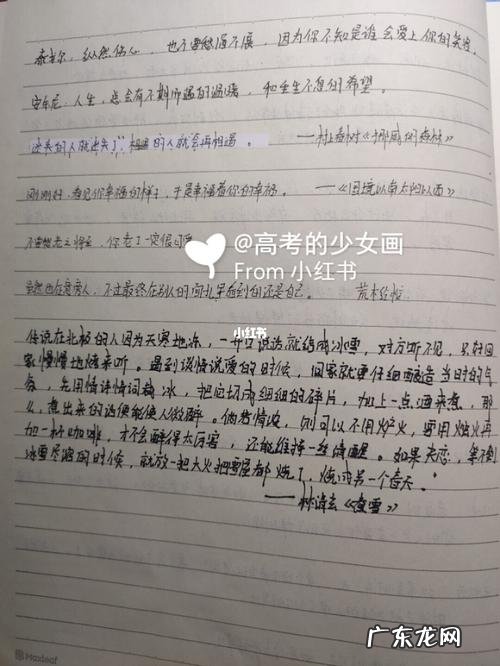 泰戈尔：纵然伤心，也不要愁眉不展，因为你不知是谁会爱上你的笑容。
安东尼：人生，总会有不期而遇的温暖，和生生不息的希望。
迷失的人就迷失了，相遇的人就会再相遇。——村上春树《挪威的森林》
刚刚好，看见你幸福的样子，于是幸福着你的幸福。——《国境以南太阳以西》
不要想老之将至，你老了一定很可爱
@高考的少女画
From 小红书
小红书
虽然也在意旁人，不过最终在别人的 里看到的还是自己。 荒木经惟
传说在北极的人因为天寒地冻，一开口说话就结成冰雪，对方听不见，只好回
家慢慢地烤来听。遇到谈情说爱的时候，回家就要仔细酿造当时的气
氛，先用情诗情词裁冰，把它切成细细的碎片，加上一点酒来煮，那
么，煮出来的话便能使人微醉。倘若情浓，则可以不用炉火，要用烛火再
加一杯咖啡，才不会醉得太厉害，还能维持一丝清醒。如果失恋，等不到
冰雪尽融的时候，就放一把大火把雪屋都烧了，烧成另一个春天。
——林清玄《煮雪》
Maxleaf
广东龙网